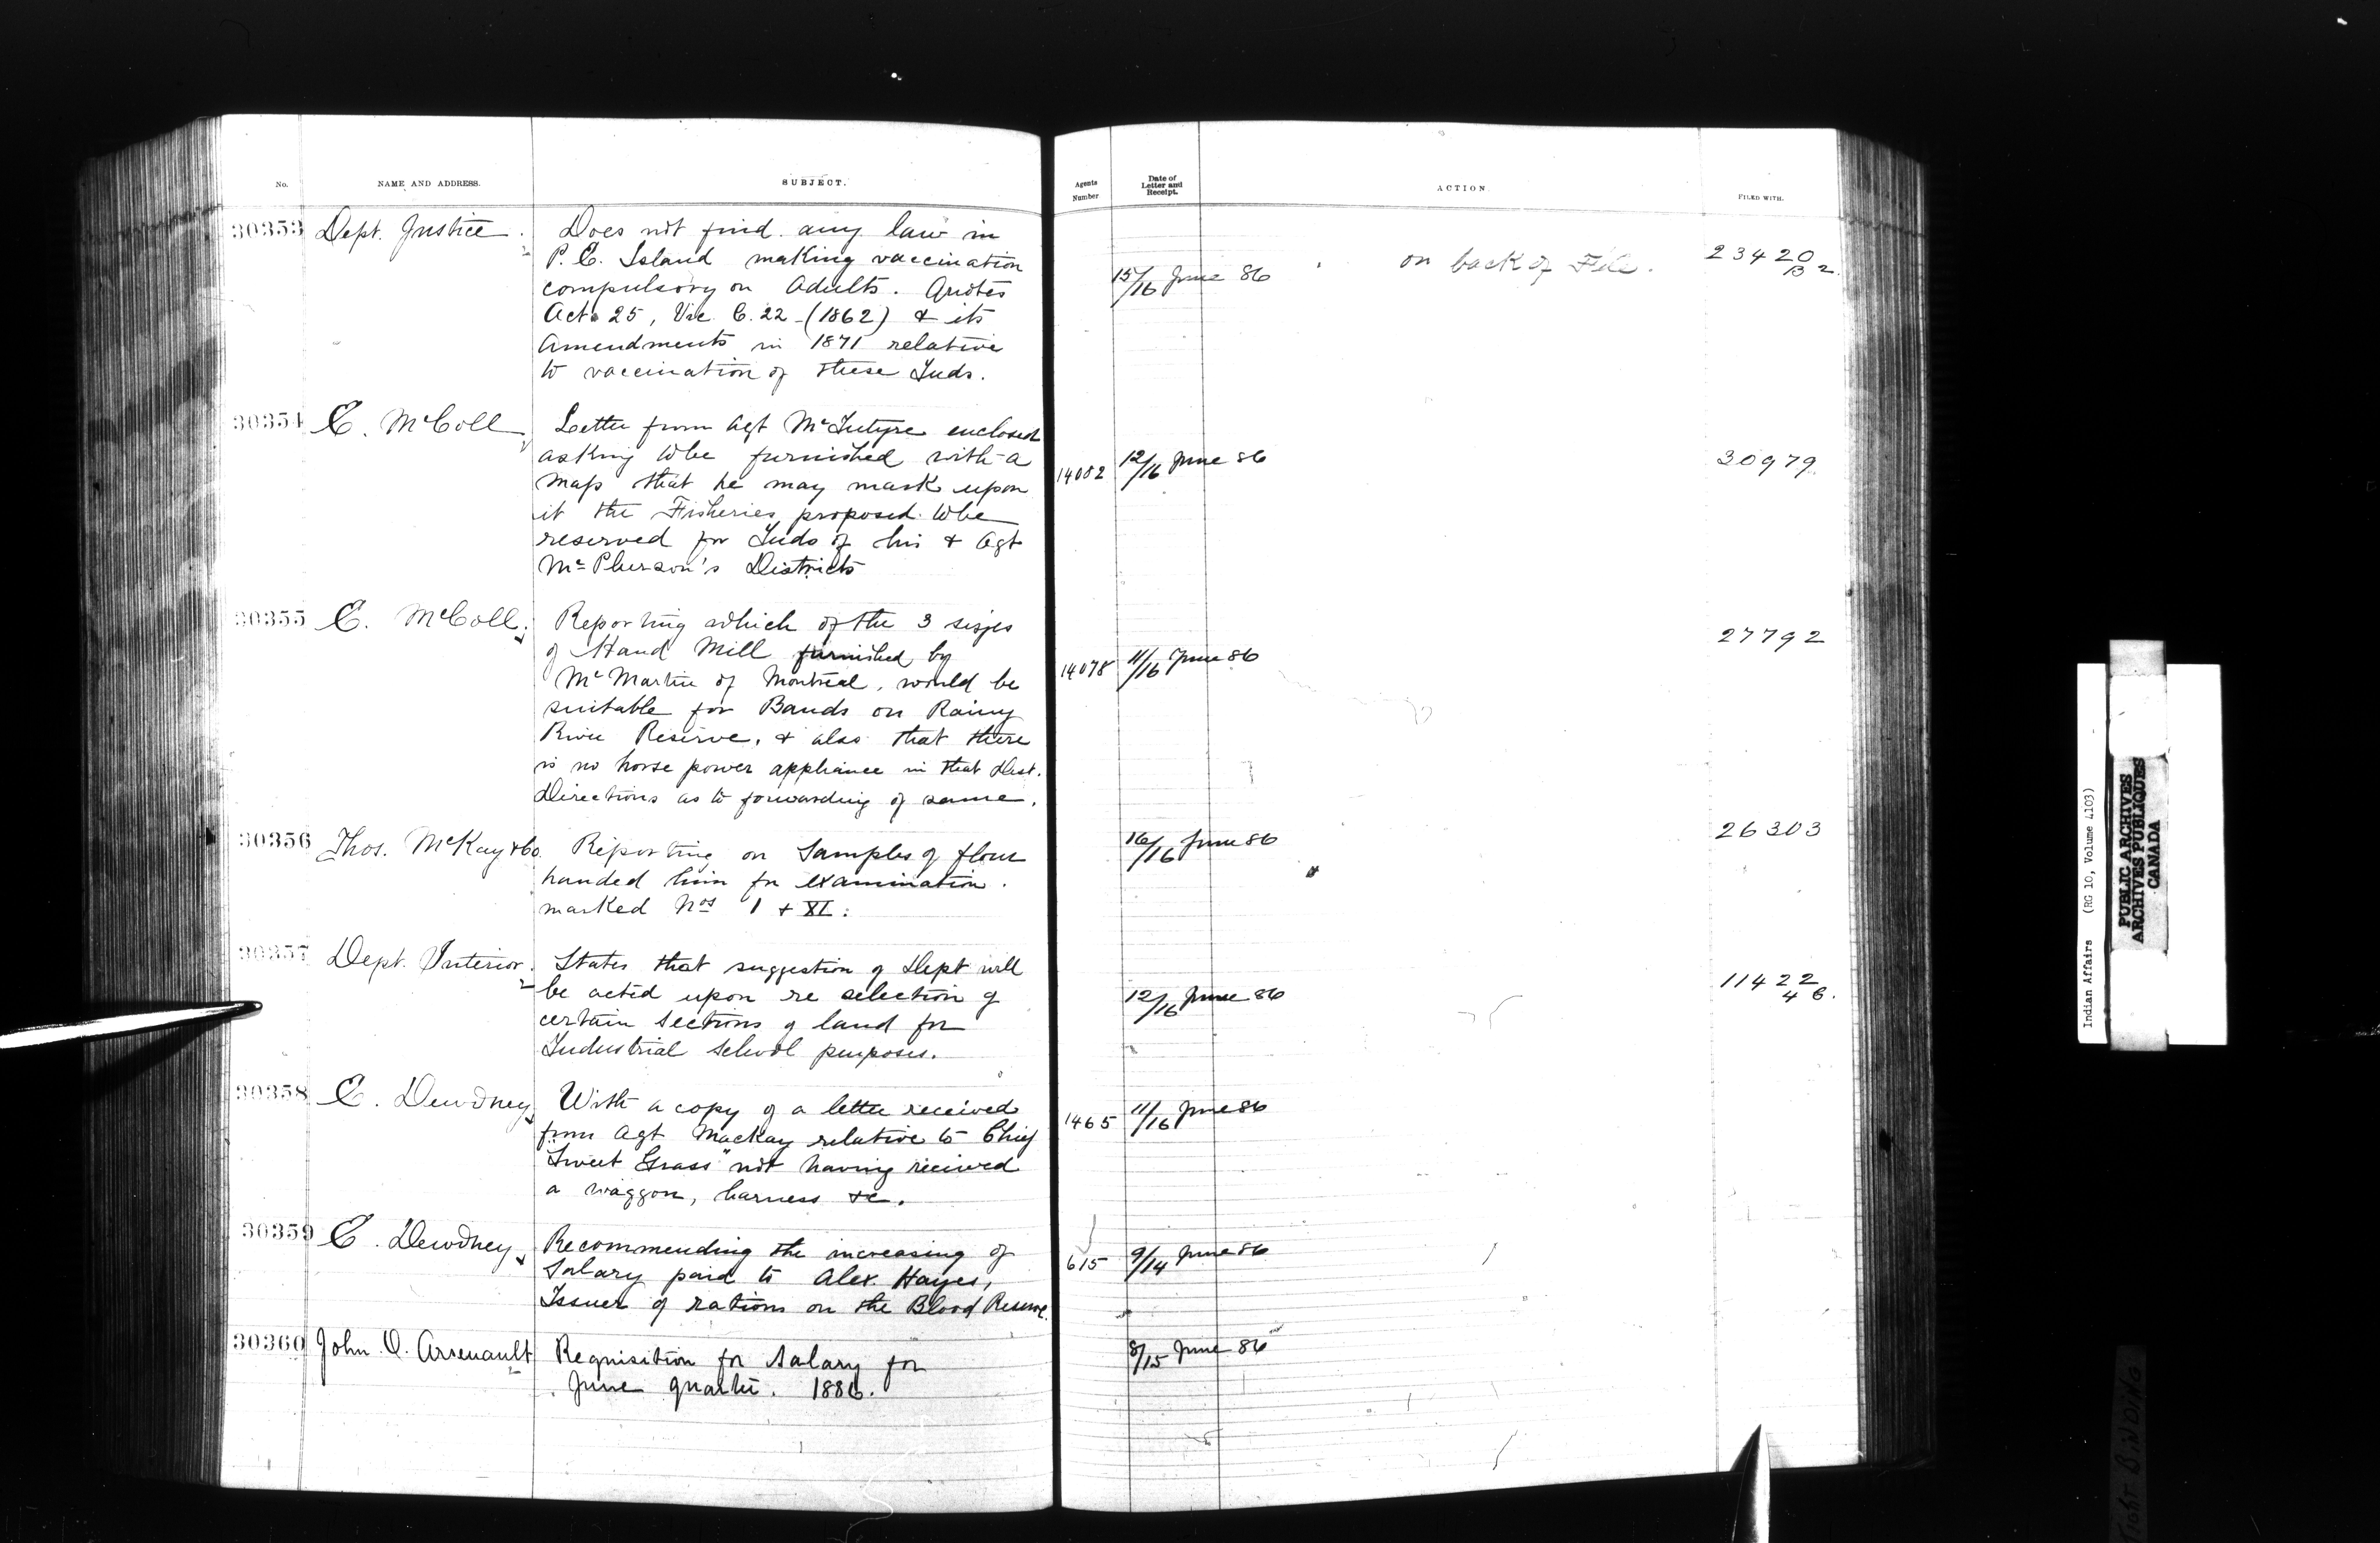 No. NAME AND ADDRESS. SUBJECT. Agents Number Date of Letter and Receipt. ACTION. FILED WITH.
30353 Dept. Justice. Does not find any law in
P. E. Island making vaccination
compulsory on Adults. Quotes
Act 25, Vic. C. 22 - (1862) & its
Amendments in 1871 relative
to vaccination of these Inds.
15/16 June 86 on back of File. 23420
B 2.
30354 E. McColl Letter from Agt McIntyre enclosed
asking to be furnished with a
map that he may mark upon
it the Fisheries proposed to be
reserved for Inds of his & Agt
McPherson's Districts
14082 12/16 June 86 30979
30355 E. McColl. Reporting which of the 3 sizes
of Hand Mill furnished by
Mc Martin of Montreal, would be
suitable for Bands on Rainy
River Reserve, & also that there
is no horse power appliance in that Dist.
Directions as to forwarding of same.
14078 11/16 June 86 27792
30356 Thos. McKay & Co. Reporting on Samples of flour
handed him for examination.
marked Nos 1 & XI.
16/16 June 86 26303
30357 Dept. Interior. States that suggestion of Dept will
be acted upon re selection of
certain sections of land for
Industrial School purposes.
12/16 June 86 11422
46.
30358 E. Dewdney With a copy of a letter received
from Agt Mackay relative to Chief
"Sweet Grass" not having received
a waggon, harness &c.
1465 11/16 June 86
30359 E. Dewdney Recommending the increasing of
Salary paid to Alex. Hayes,
Issuer of rations on the Blood Reserve.
615 9/14 June 86
30360 John O. Arsenault Requisition for Salary for
June quarter. 1886.
8/15 June 86
Indian Affairs (RG 10, Volume 4103)
PUBLIC ARCHIVES
ARCHIVES PUBLIQUES
CANADA
TIGHT BINDING